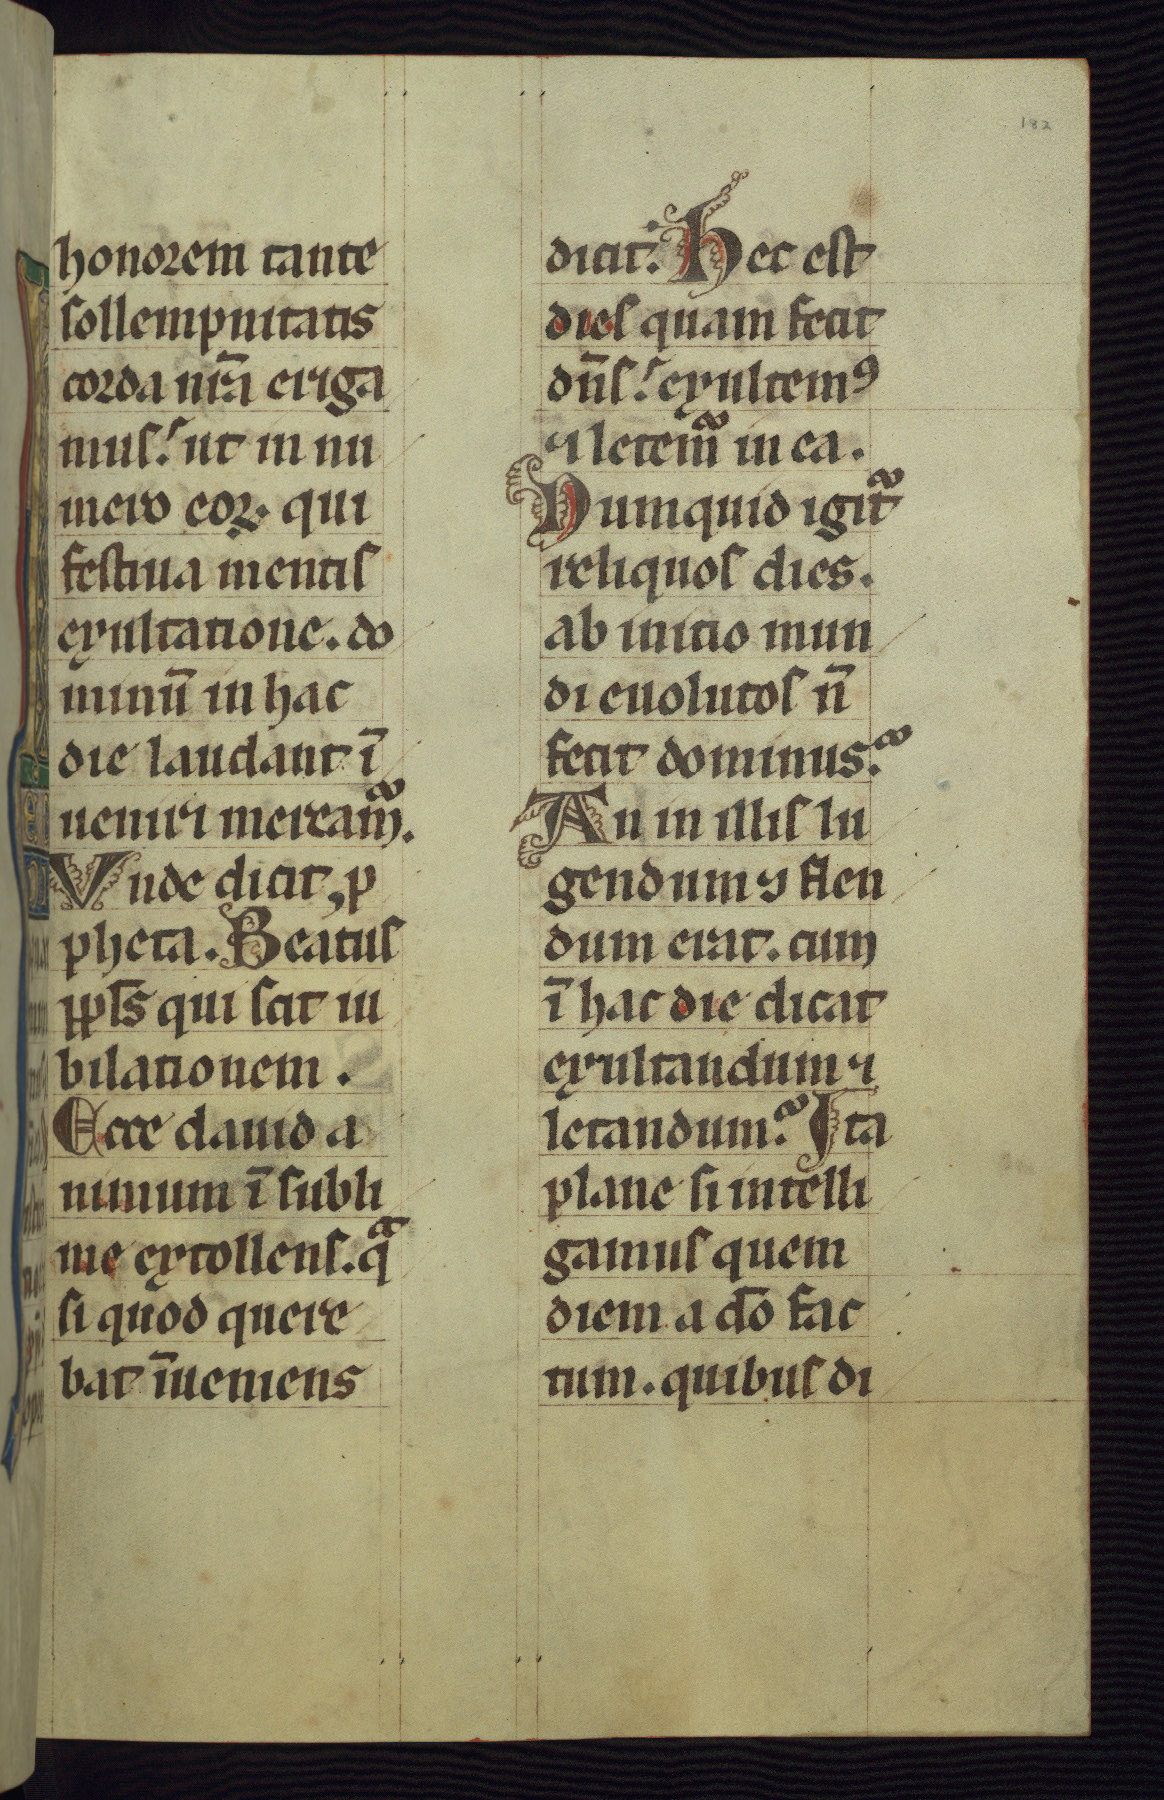 182
honorem tante
sollempnitatis
corda nr̄a eriga
mus. ut in nu
mero eoꝝ. qui
festiua mentis
exultatione. do
minū in hac
die laudant ī
ueniri mereamᷓ.
Vnde dicit ꝓ
pheta. Beatus
ppl̄s qui scit iu
bilationem.
Ecce dauid a
nimum ī subli
me extollens. qᷓ
si quod quere
bat īueniens
dicit. Hec est
dies quam fecit
dn̄s. exultemꝰ
⁊ letemᷓ in ea.
Numquid igitᷓ
reliquos dies.
ab initio mun
di euolutos n̄
fecit dominus.
An in illis lu
gendum ⁊ flen
dum erat. cum
ī hac die dicat
exultandum ⁊
letandum. Ita
plane si intelli
gamus quem
diem a do̅ fac
tum. quibus di